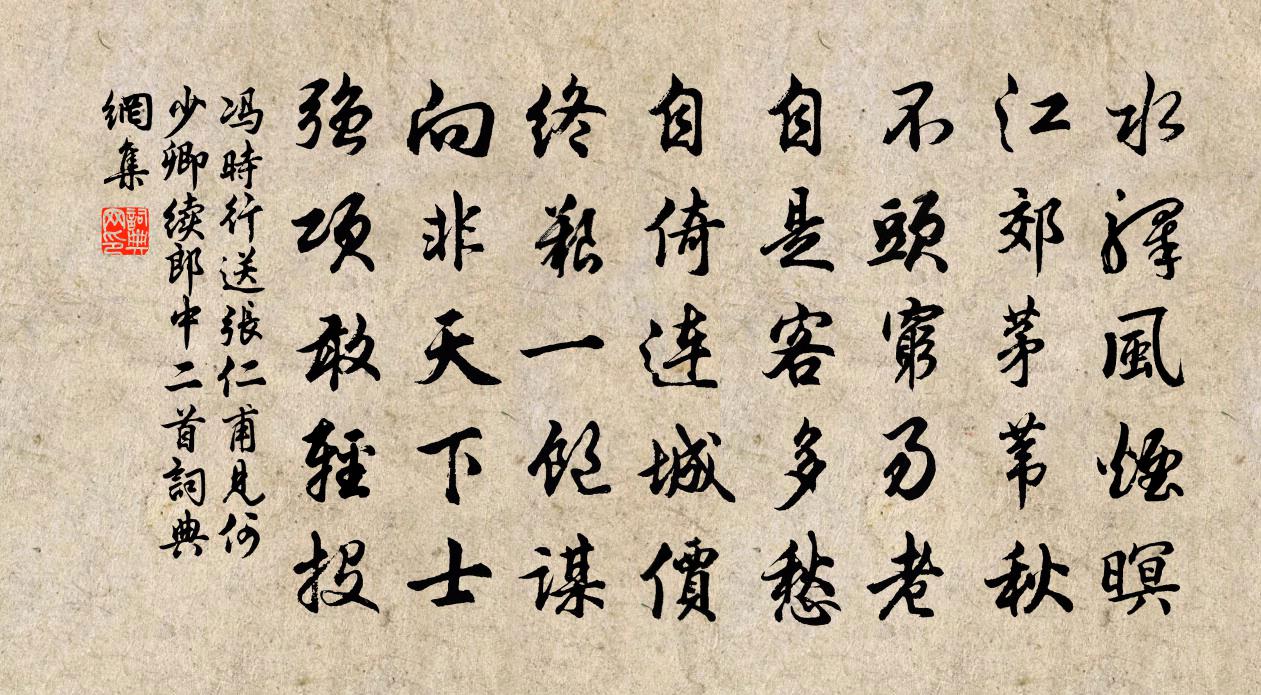 水驛風煙暝
江郊茅葦秋
不頭窮易老
自是客多愁
自倚連城價
終艱一飽謀
向非天下士
強項敢輕投
冯時行送張仁甫見何
少卿續郎中二首詞典
網集
詞典
网印